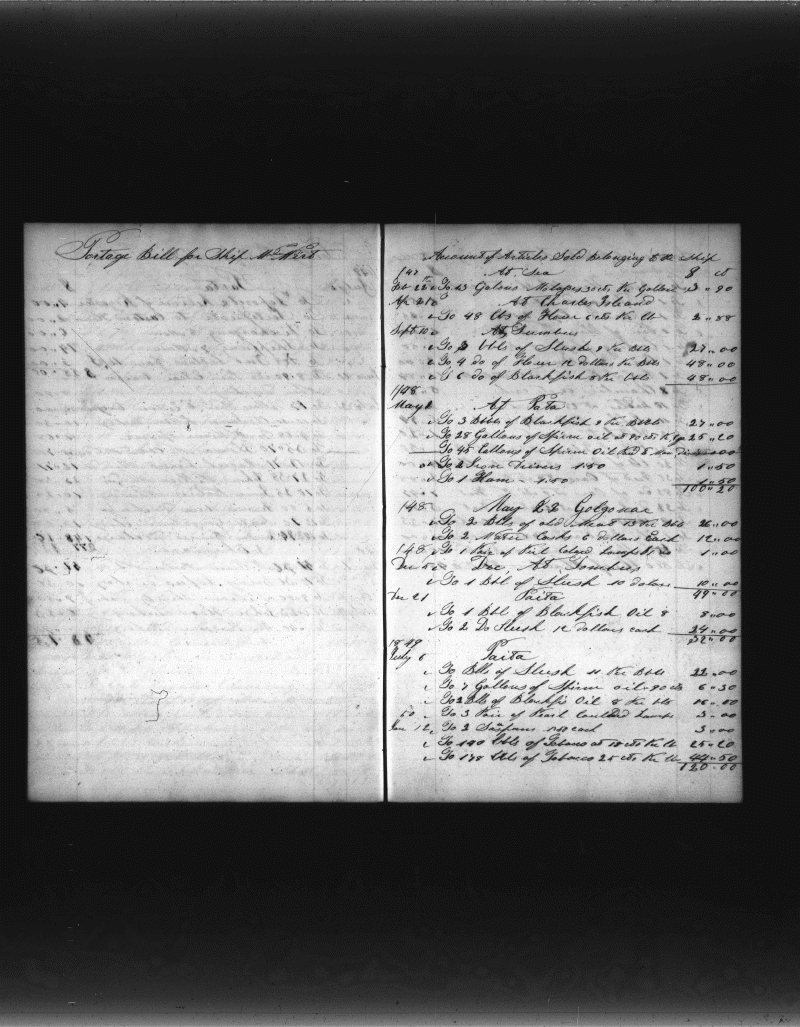 Portage Bill for Ship Wm Wirt
Account of Articles Sold belonging to the Ship
/47 At Sea $ ct
Feb 22 To 13 Galons Molasses 30 cts the Gallon 3..90
Apr 21 At Charles Island
To 48 lbs of Flour 6 cts the lb 2..88
Sept 10 At Tumbus
To 3 bbls of Slush 9 the bbls 27..00
To 4 do of Flour 12 dollars the bbls 48..00
To 6 do of Blackfish 8 the bbls 48..00
1848
May At Pata
To 3 Bbls of Blackfish 9 the Bbls 27..00
To 28 Gallons of Sperm oil at 90 cts the Ga 25..20
To 45 Gallons of Sperm Oil
To Iron 1.50 1..50
To 1 Ham - 1.50 1..50
100..20
/48 May 22
To 2 Bbls of old Meat 13 the Bbl 26..00
To 2 Water Casks 6 dollars Each 12..00
/48 To 1 Pair of 1..00
Dec 5 Dec, At Tombus
To 1 Bbl of Slush 10 dolars 10..00
Dec 21 Paita 49..00
To 1 Bbl of Blackfish Oil 8 8..00
To 2 Do Slush 12 dollars each 24..00
32..00
1849
July 6 Paita
To Bbls of Slush 11 the Bbls 22..00
To 7 Gallons of Sperm oil 90 cts 6..30
To 2 Bbls of Blackfis Oil 8 the bbls 16..00
50 To 3 Pair of 3..00
Jan 12 To 2 1.50 each 3..00
To 140 lbls of Tobaco at 18 cts the lb 25..20
To 178 lbls of Tobacco 25 cts the lb 44..50
120..00